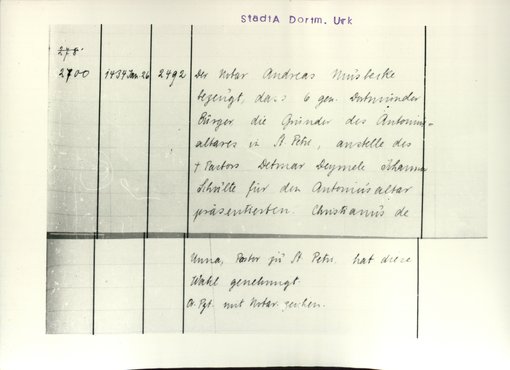 StadtA Dortm. Urk
278.
2700 1434 Jan. 26 2492 Der Notar Andreas Musbecke
bezeugt, dass 6 gen. Dortmunder
Bürger die Gründer des Antonius-
altares in St. Petri, anstelle des
+ Pastors Detmar Deymele Johannes
Schülte für den Antoniusaltar
präsentierten. Christianus de
Unna, Pastor zu St. Petri hat diese
Wahl genehmigt.
mit Notar